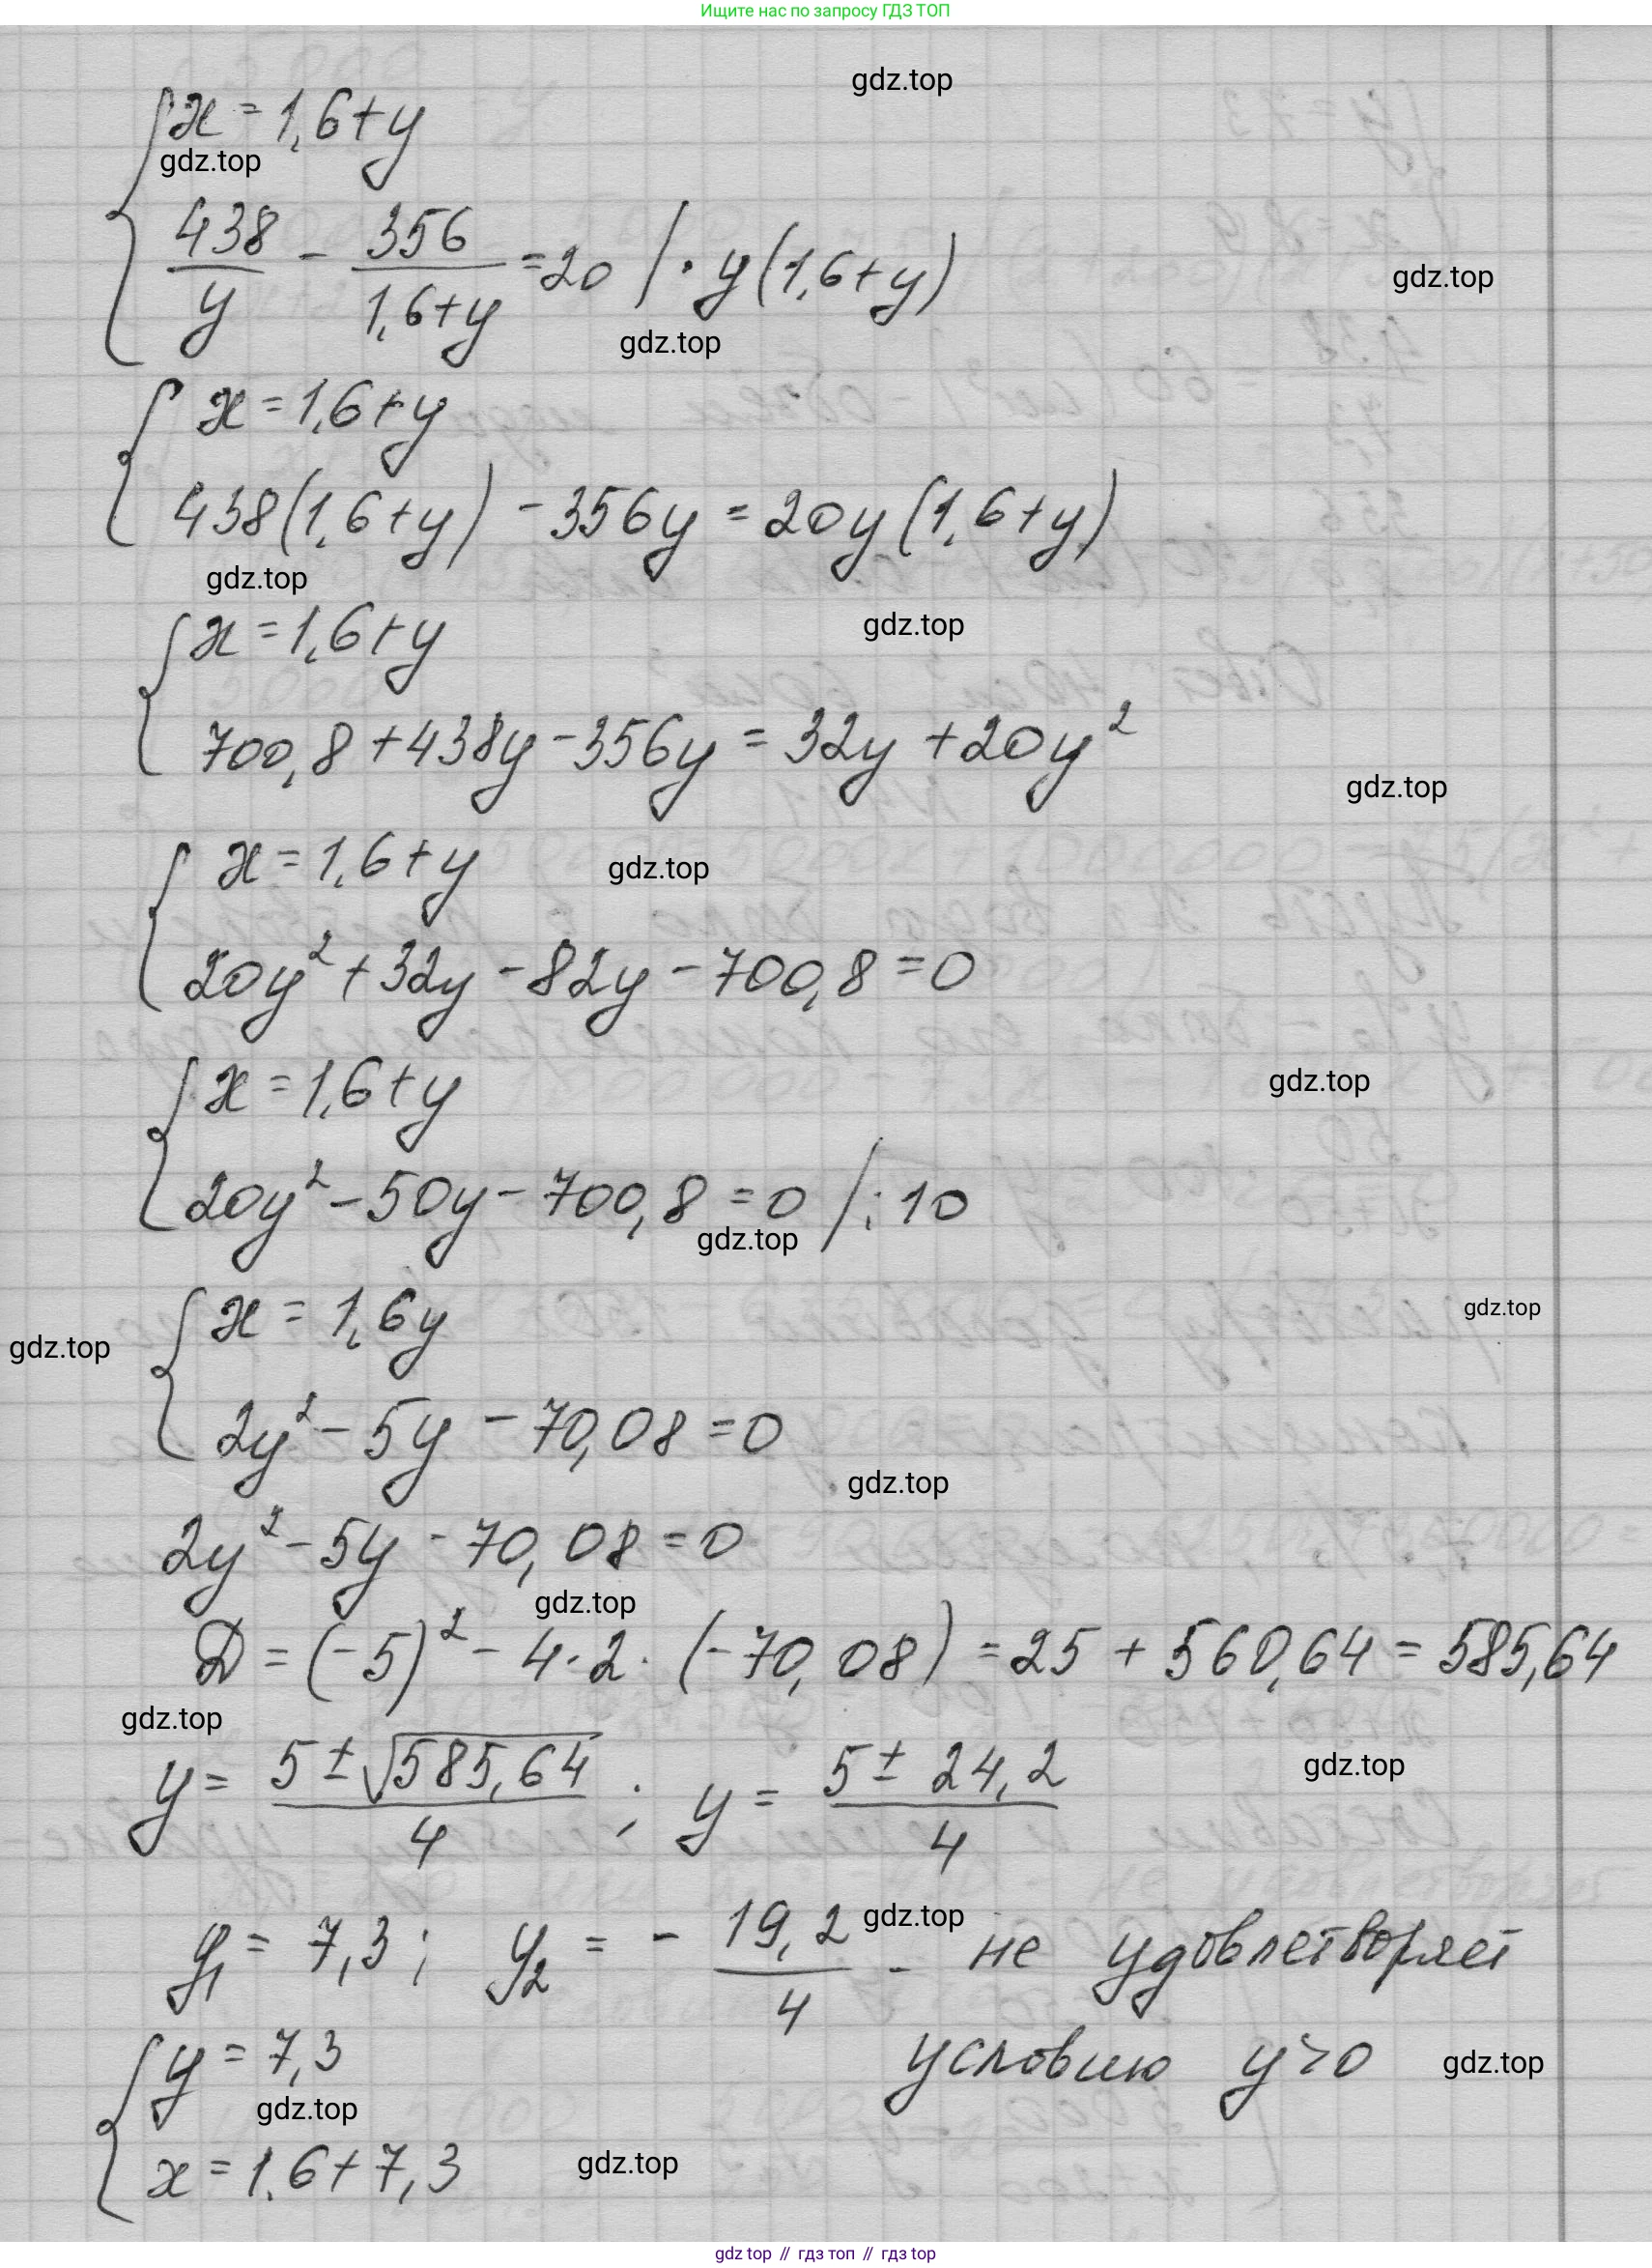 Ищите нас по запросу ГДЗ ТОП
gdz.top
x = 1,6 + y
gdz.top
438/y - 356/(1,6 + y) = 20 | · y(1,6 + y)
gdz.top
gdz.top
x = 1,6 + y
438(1,6 + y) - 356y = 20y(1,6 + y)
gdz.top
x = 1,6 + y
gdz.top
700,8 + 438y - 356y = 32y + 20y²
gdz.top
x = 1,6 + y
gdz.top
20y² + 32y - 82y - 700,8 = 0
x = 1,6 + y
gdz.top
20y² - 50y - 700,8 = 0 | : 10
gdz.top
x = 1,6y
gdz.top
gdz.top
2y² - 5y - 70,08 = 0
gdz.top
2y² - 5y - 70,08 = 0
gdz.top
D = (-5)² - 4 · 2 · (-70,08) = 25 + 560,64 = 585,64
gdz.top
y = (5 ± √585,64)/4 ; y = (5 ± 24,2)/4
gdz.top
y₁ = 7,3 ; y₂ = - 19,2/4 - не удовлетворяет
gdz.top
y = 7,3 условию y > 0
gdz.top
gdz.top
x = 1,6 + 7,3
gdz.top
gdz top // гдз топ // гдз top